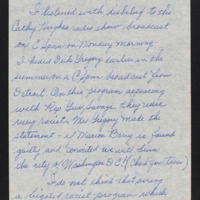 I listened with disbelief to the
Cathy Hughes radio show, broadcast
on C Span on Monday morning.
I heard Dick Gregory earlier in the
summer on a C Span broadcast from
Detroit. On this program appearing
with Rep Gus Savage they were
very racist. Mr Gregory made the
statement - if Marion Barry is found
guilty and convicted we will burn
the city of Washington D.C. (Check your tapes)
I do not think that airing
a bigoted racist program which